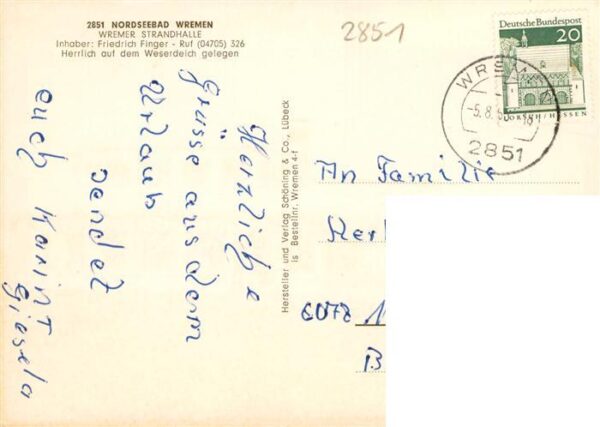 2851 NORDSEEBAD WREMEN
WREMER STRANDHALLE
Inhaber: Friedrich Finger - Ruf (04705) 326
Herrlich auf dem Weserdeich gelegen
Herzliche
Grüsse aus dem
Urlaub
sendet
euch Karin T
Giesela
Hersteller und Verlag Schöning & Co., Lübeck
is Bestellnr. Wremen 4-f
2851
Deutsche Bundespost
20
LORSCH/HESSEN
WREMEN
-5.8.
2851
An Familie
6078
B